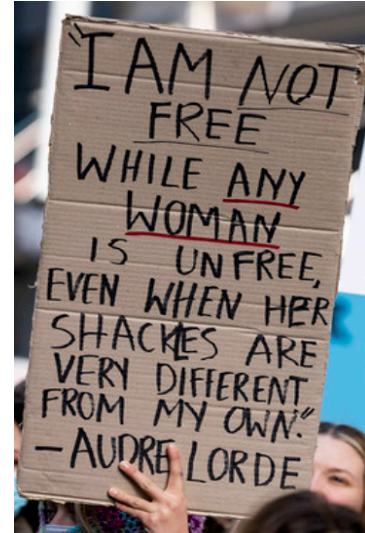 "I AM NOT
FREE
WHILE ANY
WOMAN
IS UNFREE,
EVEN WHEN HER
SHACKLES ARE
VERY DIFFERENT
FROM MY OWN."
—AUDRE LORDE